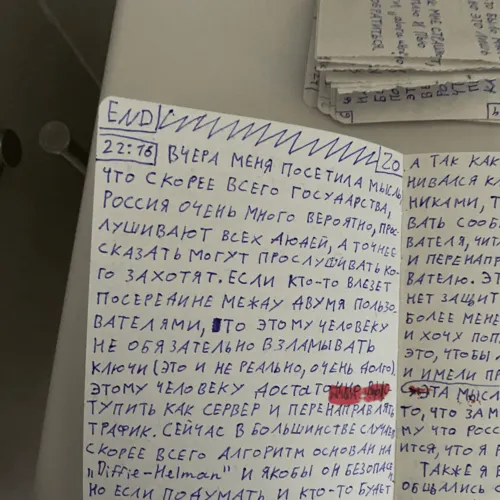 END
22:16 ВЧЕРА МЕНЯ ПОСЕТИЛА МЫСЛЬ, 20
ЧТО СКОРЕЕ ВСЕГО ГОСУДАРСТВА,
РОССИЯ ОЧЕНЬ МНОГО ВЕРОЯТНО, ПРОС-
ЛУШИВАЮТ ВСЕХ ЛЮДЕЙ, А ТОЧНЕЕ
СКАЗАТЬ МОГУТ ПРОСЛУШИВАТЬ КО-
ГО ЗАХОТЯТ. ЕСЛИ КТО-ТО ВЛЕЗЕТ
ПОСЕРЕДИНЕ МЕЖДУ ДВУМЯ ПОЛЬЗО-
ВАТЕЛЯМИ, ТО ЭТОМУ ЧЕЛОВЕКУ
НЕ ОБЯЗАТЕЛЬНО ВЗЛАМЫВАТЬ
КЛЮЧИ (ЭТО И НЕ РЕАЛЬНО, ОЧЕНЬ ДОЛГО).
ЭТОМУ ЧЕЛОВЕКУ ДОСТАТОЧНО ВЫС-
ТУПИТЬ КАК СЕРВЕР И ПЕРЕНАПРАВЛЯТЬ
ТРАФИК. СЕЙЧАС В БОЛЬШИНСТВЕ СЛУЧАЕВ
СКОРЕЕ ВСЕГО АЛГОРИТМ ОСНОВАН НА
„Diffie-Helman" И ЯКОБЫ ОН БЕЗОПАС
НО ЕСЛИ ПОДУМАТЬ И КТО-ТО БУДЕТ
А ТАК КАК
НИВАЛСЯ КЛ
НИКАМИ, Т
ВАТЬ СООБ
ВАТЕЛЯ, ЧИТ
И ПЕРЕНАПР
ВАТЕЛЮ. ЭТ
НЕТ ЗАЩИТ
БОЛЕЕ МЕНЕ
И ХОЧУ ПОП
ЭТО, ЧТОБЫ
И ИМЕЛИ ПР
ЭТА МЫСЛ
ТО, ЧТО ЗА М
МУ ЧТО РОССИ
ИТСЯ, ЧТО Я Р
ТАКЖЕ Я Е
ОБЩАЛИСЬ С